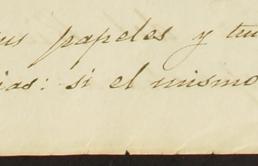 us papeles y tu
ias: si el mismo